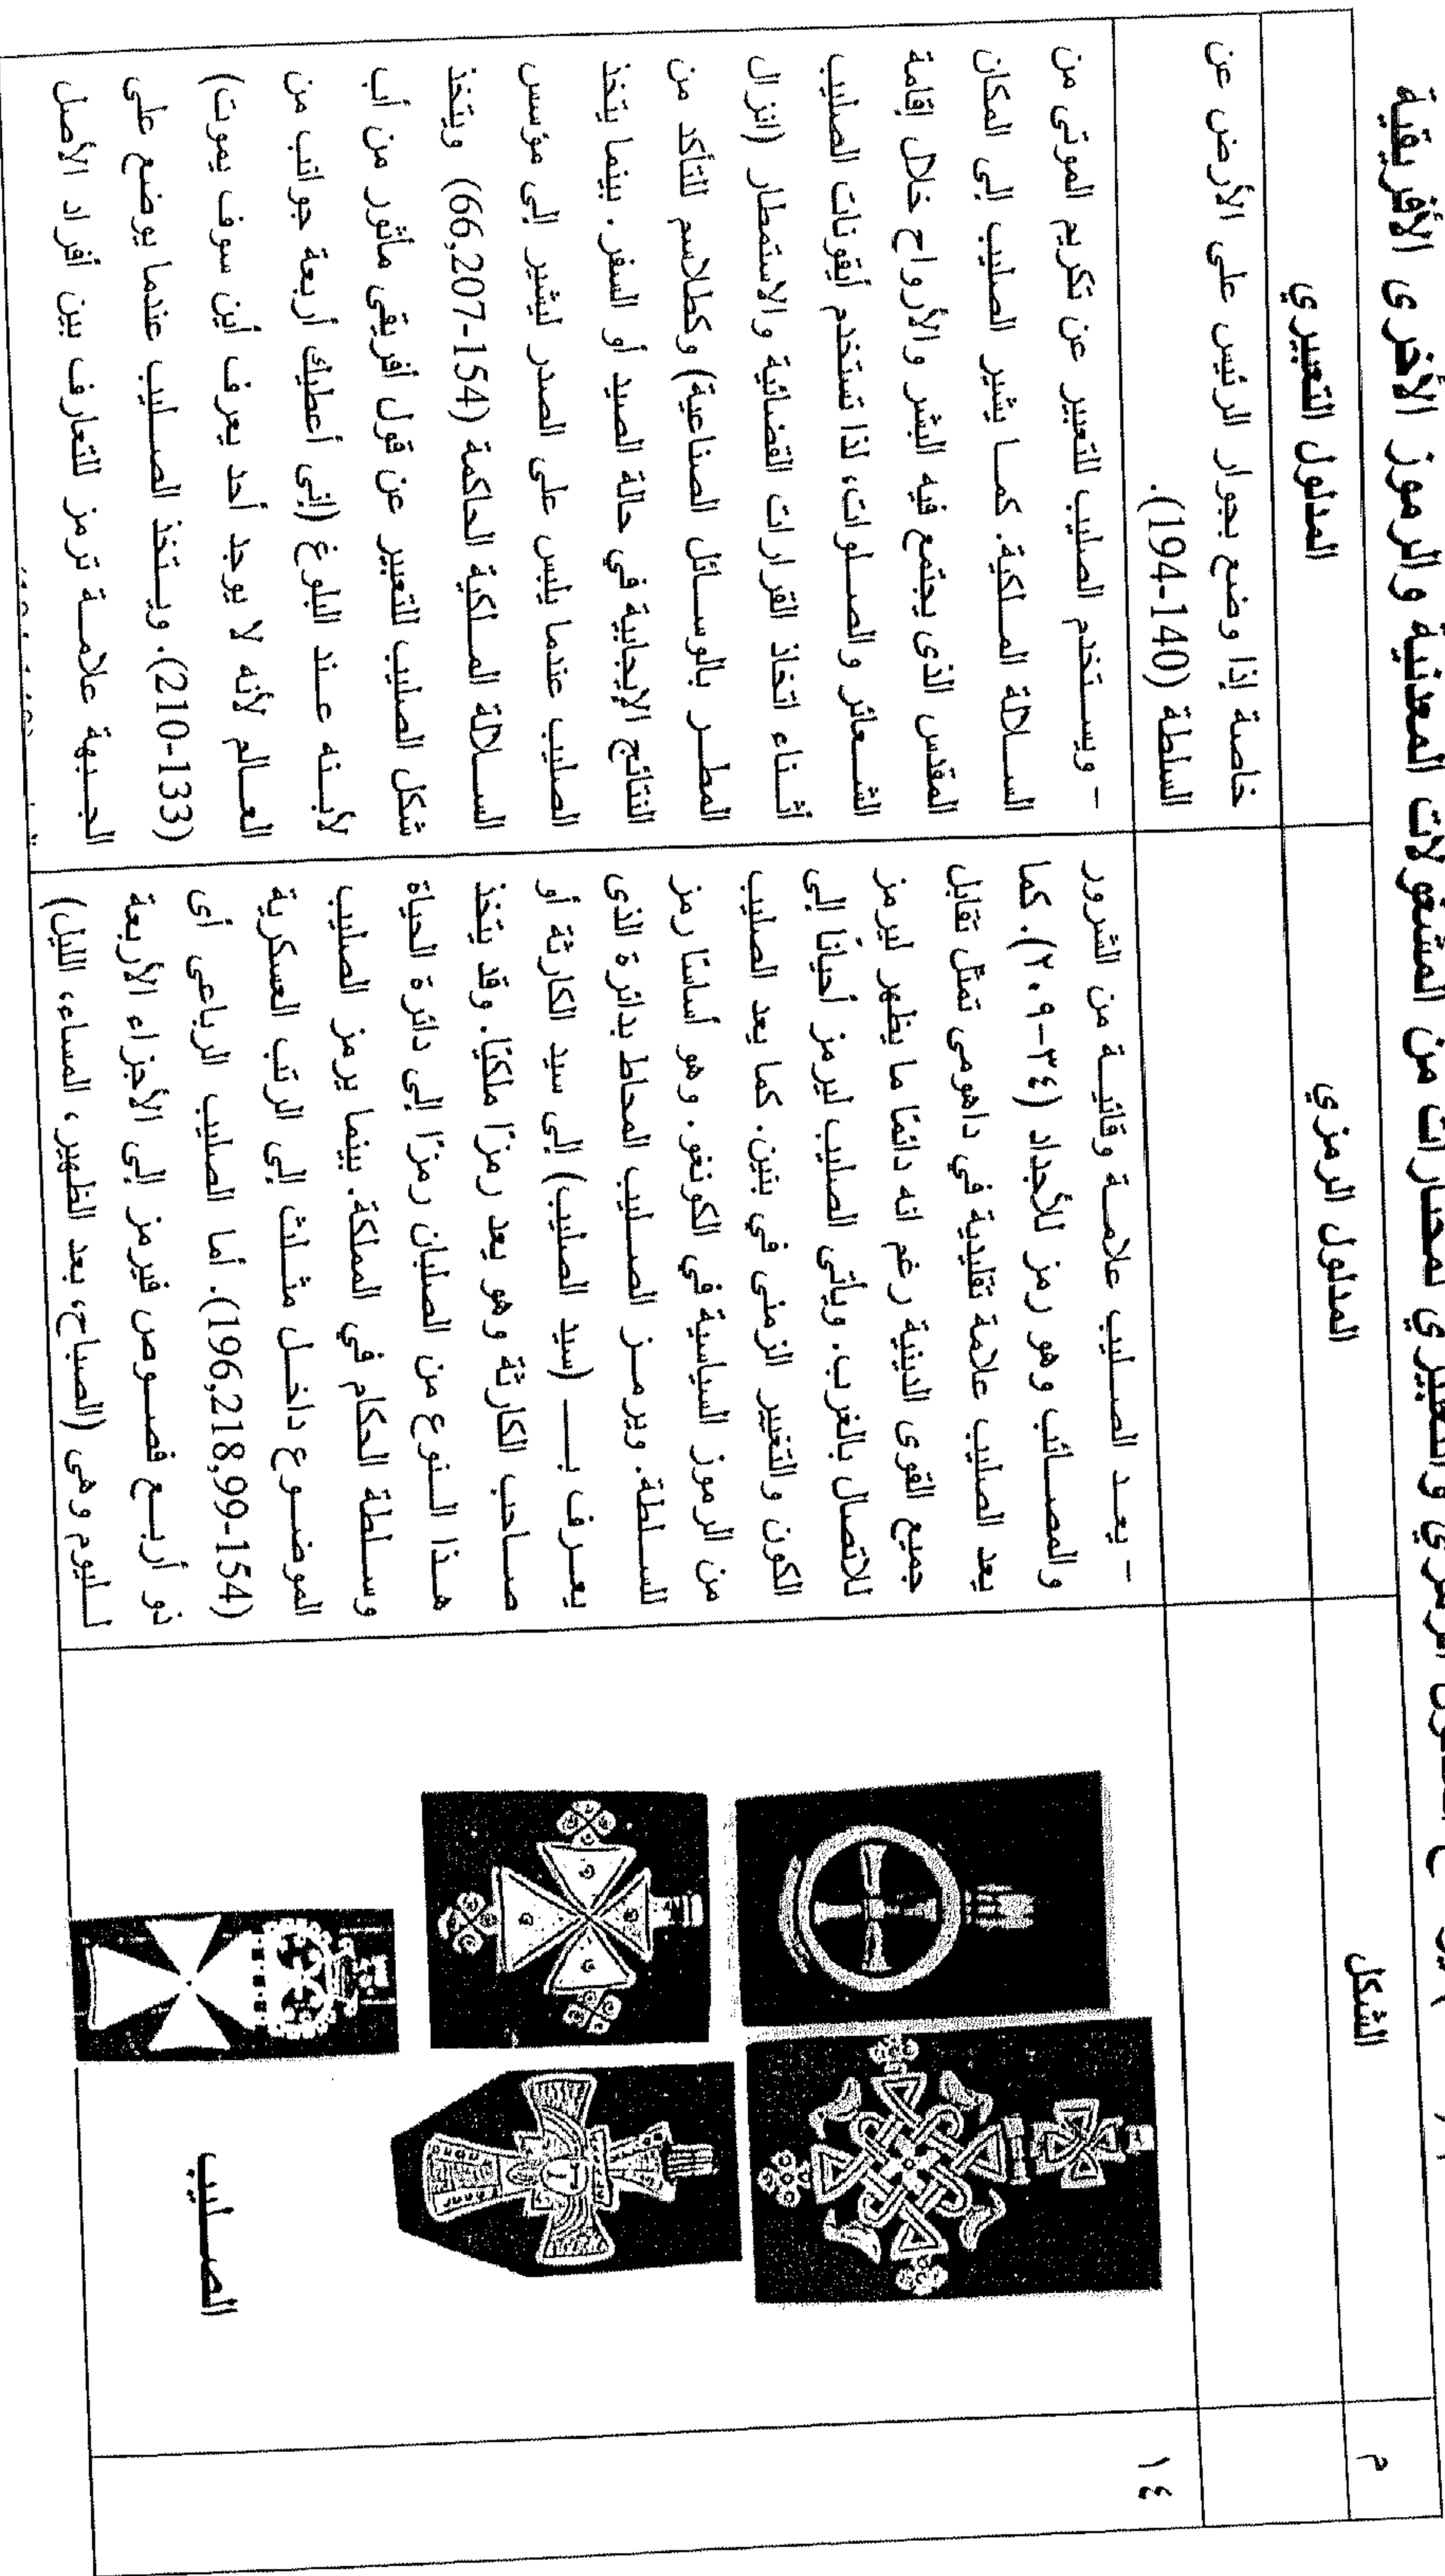 والرموز الأخرى الأفريقية
لمختارات من المشغولات المعدنية
م
الشكل
المدلول الرمزي
المدلول التعبيري
خاصة إذا وضع بجوار الرئيس على الأرض عن
السلطة (140-194).
١٤
الصليب
- يعد الصليب علامة وقائية من الشرور
والمصائب وهو رمز للأجداد (٣٤-٢٠٩). كما
يعد الصليب علامة تقليدية في داهومى تمثل تقابل
جميع القوى الدينية رغم انه دائمًا ما يظهر ليرمز
للاتصال بالغرب. ويأتى الصليب ليرمز أحيانًا إلى
الكون والتغيير الزمنى في بنين. كما يعد الصليب
من الرموز السياسية في الكونغو. وهو أساسًا رمز
للسلطة. ويرمز الصليب المحاط بدائرة الذى
يعرف بـ (سيد الصليب) إلى سيد الكارثة أو
صاحب الكارثة وهو يعد رمزًا ملكيًا. وقد يتخذ
هذا النوع من الصلبان رمزًا إلى دائرة الحياة
وسلطة الحكام في المملكة. بينما يرمز الصليب
الموضوع داخل مثلث إلى الرتب العسكرية
(196,218,99-154). أما الصليب الرباعى أى
ذو أربع فصوص فيرمز إلى الأجزاء الأربعة
لليوم وهى (الصباح، بعد الظهير، المساء، الليل)
- ويستخدم الصليب للتعبير عن تكريم الموتى من
السلالة الملكية. كما يشير الصليب إلى المكان
المقدس الذى يجتمع فيه البشر والأرواح خلال إقامة
الشعائر والصلوات، لذا تستخدم أيقونات الصليب
أثناء اتخاذ القرارات القضائية والاستمطار (انزال
المطر بالوسائل الصناعية) وكطلاسم للتأكد من
النتائج الإيجابية في حالة الصيد أو السفر. بينما يتخذ
الصليب عندما يلبس على الصدر ليشير إلى مؤسس
السلالة الملكية الحاكمة (66,207-154) ويتخذ
شكل الصليب للتعبير عن قول أفريقى مأثور من أب
لأبنه عند البلوغ (إنى أعطيك أربعة جوانب من
العالم لأنه لا يوجد أحد يعرف أين سوف يموت)
(210-133). ويتخذ الصليب عندما يوضع على
الجبهة علامة ترمز للتعارف بين أفراد الأصل